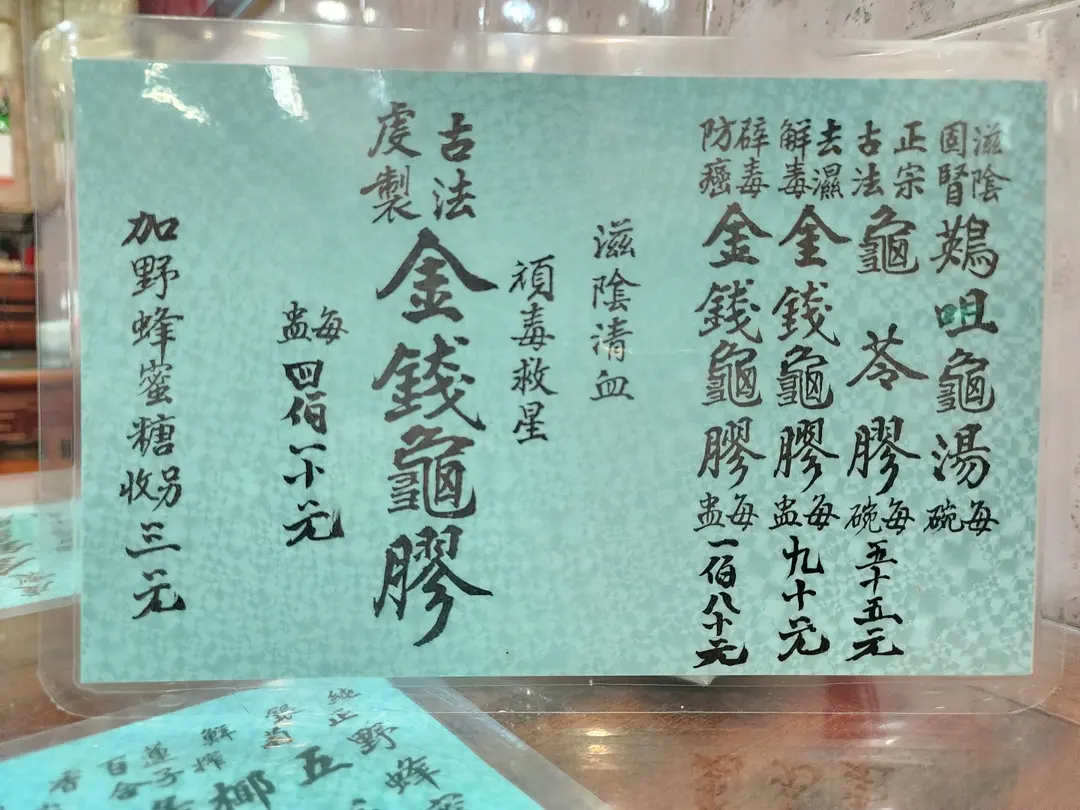 滋陰固腎鷯咀龜湯每碗
正宗古法龜苓膠每碗五十五元
去濕解毒金錢龜膠每盅九十元
辟毒防癌金錢龜膠每盅一佰八十元
滋陰清血
頑毒救星
古法虔製金錢龜膠
每盅四佰一十元
加野蜂蜜糖另收三元
純正野蜂
銀盞五
鮮擇椰
蓮子百合
香